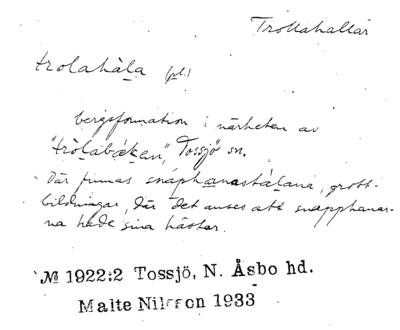 Trollahallar
trolahála (pl.)
bergsformation i närheten av
"trölabáken", Tossjö sn.
Där finnas snáphanastálana, grott-
bildningar, där det anses att snapphanar-
na hade sina hästar.
№ 1922:2 Tossjö, N. Åsbo hd.
Malte Nilsson 1933